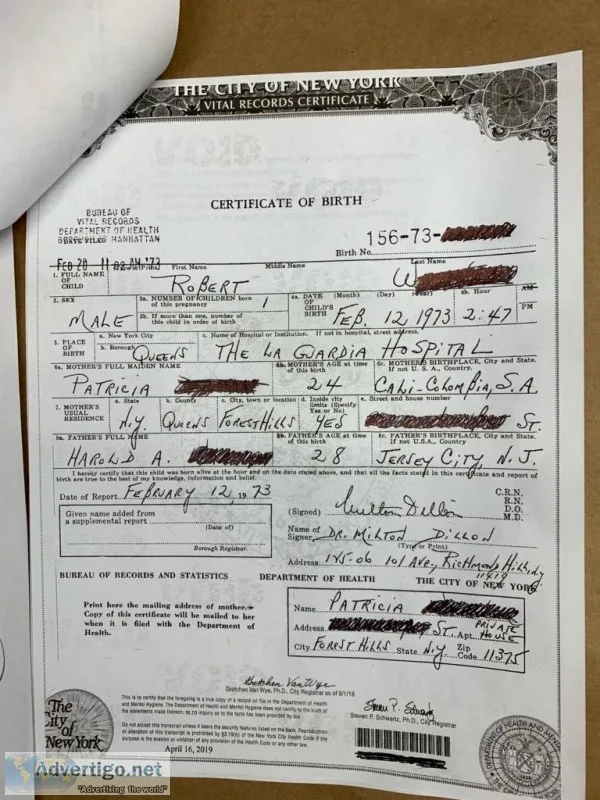 THE CITY OF NEW YORK
VITAL RECORDS CERTIFICATE
CERTIFICATE OF BIRTH
BUREAU OF
VITAL RECORDS
DEPARTMENT OF HEALTH
MANHATTAN
Birth No. 156-73-
FEB 20 11 02 AM '73
1. FULL NAME OF CHILD First Name Middle Name Last Name
ROBERT W
2. SEX MALE
3a. NUMBER OF CHILDREN born of this pregnancy 1
3b. If more than one, number of this child in order of birth
4a. DATE OF CHILD'S BIRTH (Month) (Day) (Year) FEB 12 1973
4b. Hour 2:47 AM PM
5. PLACE OF BIRTH
a. New York City
b. Borough QUEENS
c. Name of Hospital or Institution. If not in hospital, street address.
THE LA GUARDIA HOSPITAL
6a. MOTHER'S FULL MAIDEN NAME PATRICIA
6b. MOTHER'S AGE at time of this birth 24
6c. MOTHER'S BIRTHPLACE, City and State. If not U. S. A., Country.
CALI-COLOMBIA, S.A
7. MOTHER'S USUAL RESIDENCE
a. State N.Y.
b. County QUEENS
c. City, town or location FOREST HILLS
d. Inside city limits (Specify Yes or No) YES
e. Street and house number ST.
8a. FATHER'S FULL NAME HAROLD A.
8b. FATHER'S AGE at time of this birth 28
8c. FATHER'S BIRTHPLACE, City and State. If not U.S.A., Country
JERSEY CITY, N.J.
I hereby certify that this child was born alive at the hour and on the date stated above, and that all the facts stated in this certificate and report of
birth are true to the best of my knowledge, information and belief.
Date of Report FEBRUARY 12, 1973
Given name added from
a supplemental report
(Date of)
Borough Registrar.
(Signed) Milton Dillon
C.R.N.
R.N.
D.O.
M.D.
Name of Signer DR. MILTON DILLON
(Type or Print)
Address 145-06 101 AVE, RICHMOND HILL, NY
11419
BUREAU OF RECORDS AND STATISTICS DEPARTMENT OF HEALTH THE CITY OF NEW YORK
Print here the mailing address of mother.
Copy of this certificate will be mailed to her
when it is filed with the Department of
Health.
Name PATRICIA
Address ST. Apt. PRIVATE HOUSE
City FOREST HILLS State N.Y. Zip Code 11375
Gretchen Van Wye
Gretchen Van Wye, Ph.D., City Registrar as of 6/1/18
This is to certify that the foregoing is a true copy of a record on file in the Department of Health
and Mental Hygiene. The Department of Health and Mental Hygiene does not certify to the truth
of the statements made thereon, as no inquiry as to the facts has been provided by law
Do not accept this transcript unless it bears the security features listed on the back. Reproduction
or alteration of this transcript is prohibited by §3.19(b) of the New York City Health Code if the
purpose is the evasion or violation of any provision of the Health Code or any other law.
Steven P. Schwartz, Ph.D., City Registrar
The
City of
New York
April 16, 2019
Advertigo.net
"Advertising the world"